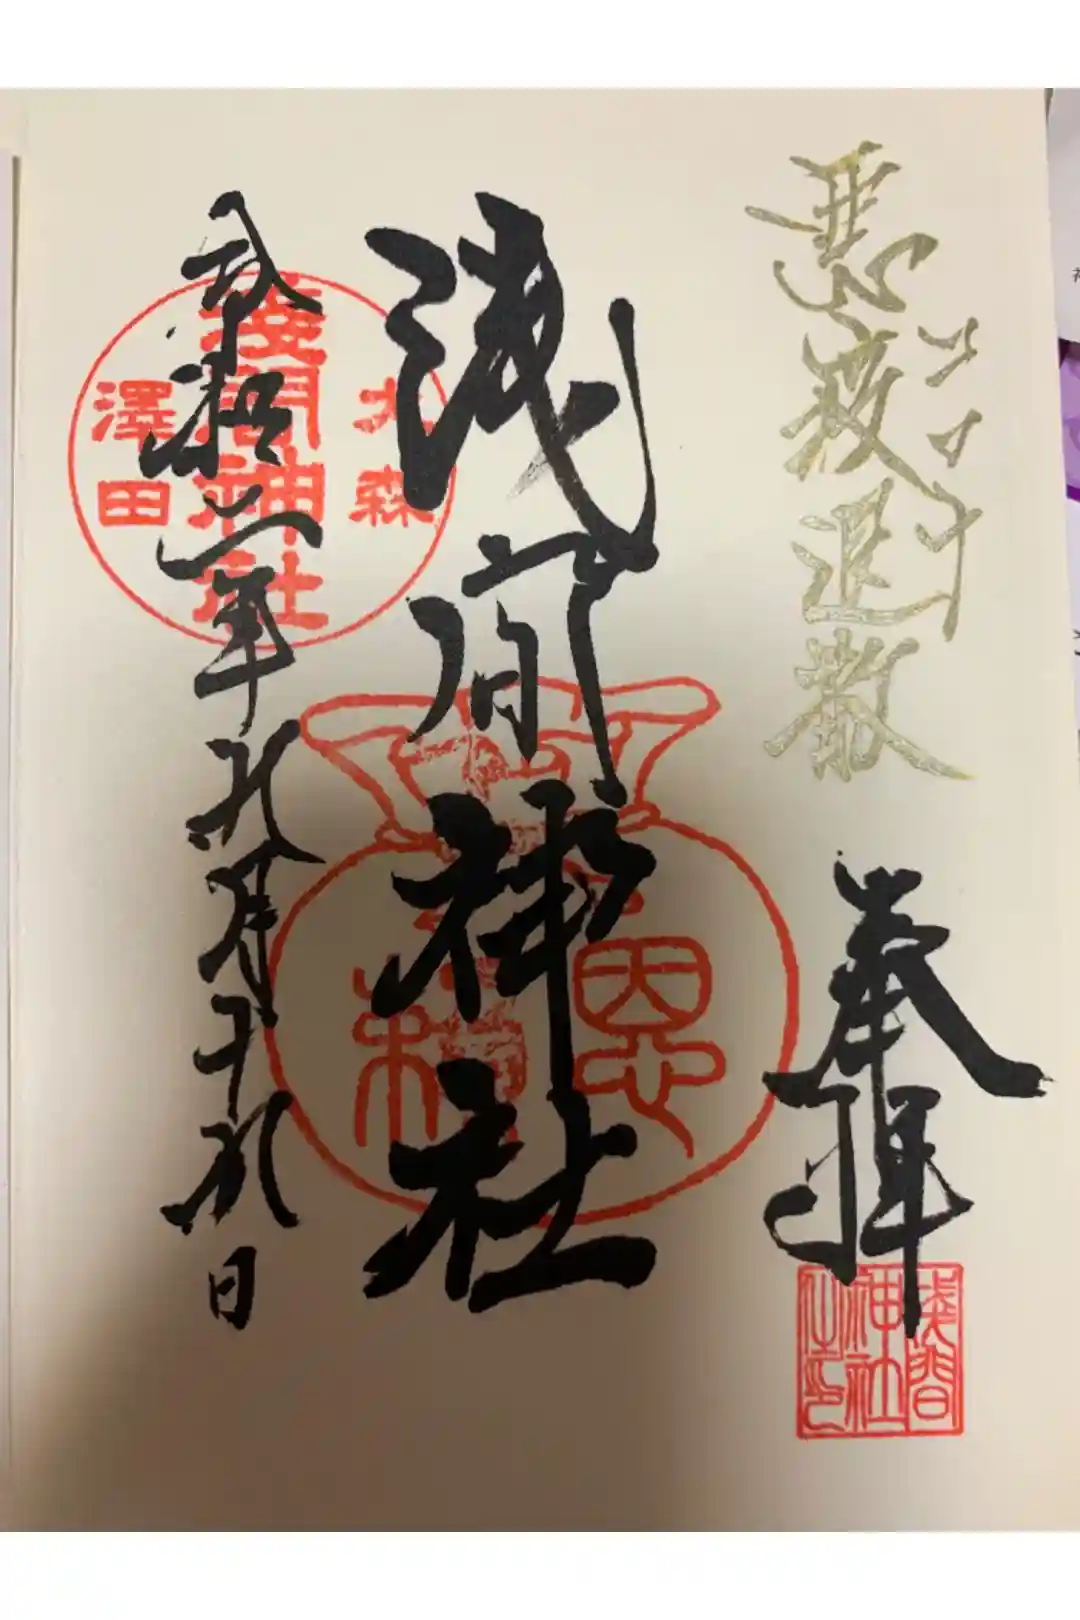 悪疫退散
奉拝
淺間神社之印
浅間神社
大森
淺間神社
澤田
弐拾一年九月十九日